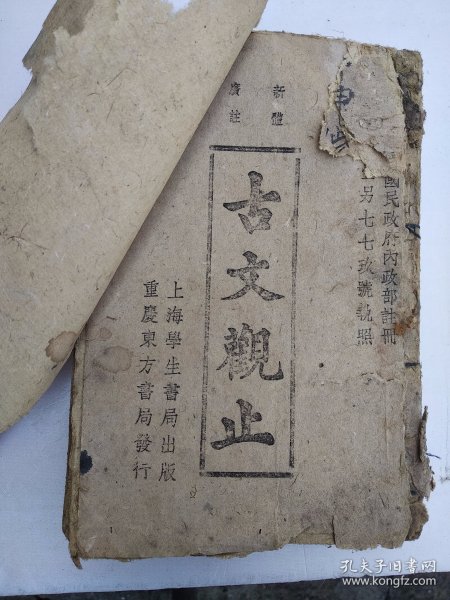 國民政府內政部註冊
七七玖號執照
新體
廣註
古文觀止
上海學生書局出版
重慶東方書局發行
孔夫子旧书网
www.kongfz.com